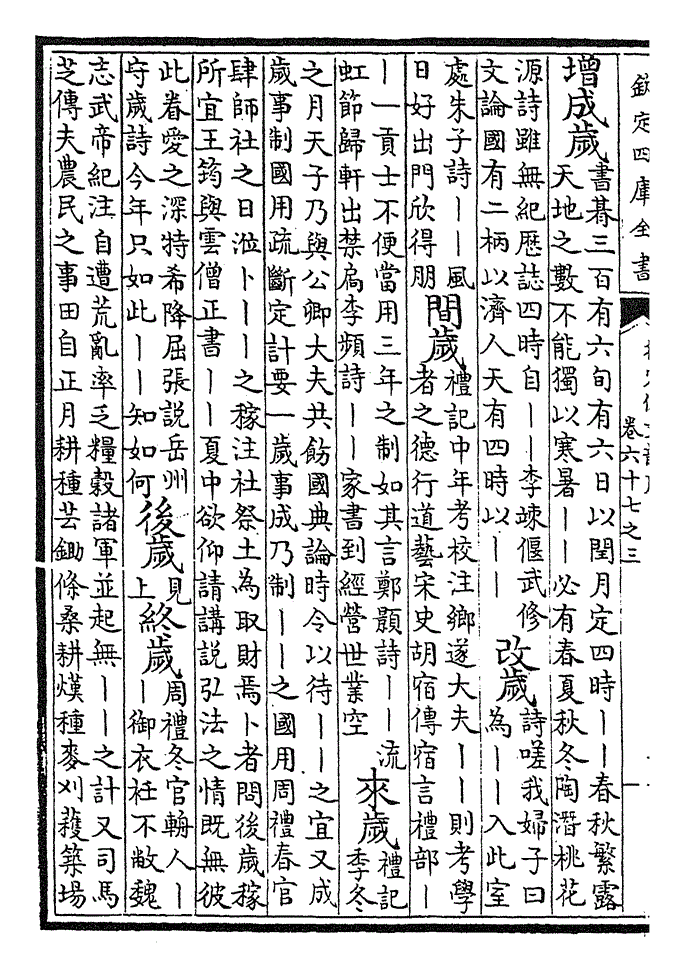 欽定四庫全書
卷六十七之三
一
增成歲
書朞三百有六旬有六日以閏月定四時丨丨春秋繁露
天地之數不能獨以寒暑丨丨必有春夏秋冬陶潛桃花
源詩雖無紀歷誌四時自丨丨李竦偃武修
文論國有二柄以濟人天有四時以丨丨
改歲
詩嗟我婦子曰
為丨丨入此室
處朱子詩丨丨風
日好出門欣得朋
間歲
禮記中年考校注鄉遂大夫丨丨則考學
者之德行道藝宋史胡宿傳宿言禮部丨
丨一貢士不便當用三年之制如其言鄭顥詩丨丨流
虹節歸軒出禁扄李頻詩丨丨家書到經營世業空
來歲
禮記
季冬
之月天子乃與公卿大夫共飭國典論時令以待丨丨之宜又成
歲事制國用疏斷定計要一歲事成乃制丨丨之國用周禮春官
肆師社之日涖卜丨丨之稼注社祭土為取財焉卜者問後歲稼
所宜王筠與雲僧正書丨丨夏中欲仰請講說弘法之情既無彼
此眷愛之深特希降屈張說岳州
守歲詩今年只如此丨丨知如何
後歲
見
上
終歲
周禮冬官輈人丨
丨御衣衽不敝魏
志武帝紀注自遭荒亂率乏糧穀諸軍並起無丨丨之計又司馬
芝傳夫農民之事田自正月耕種芸鋤條桑耕熯種麥刈穫築場